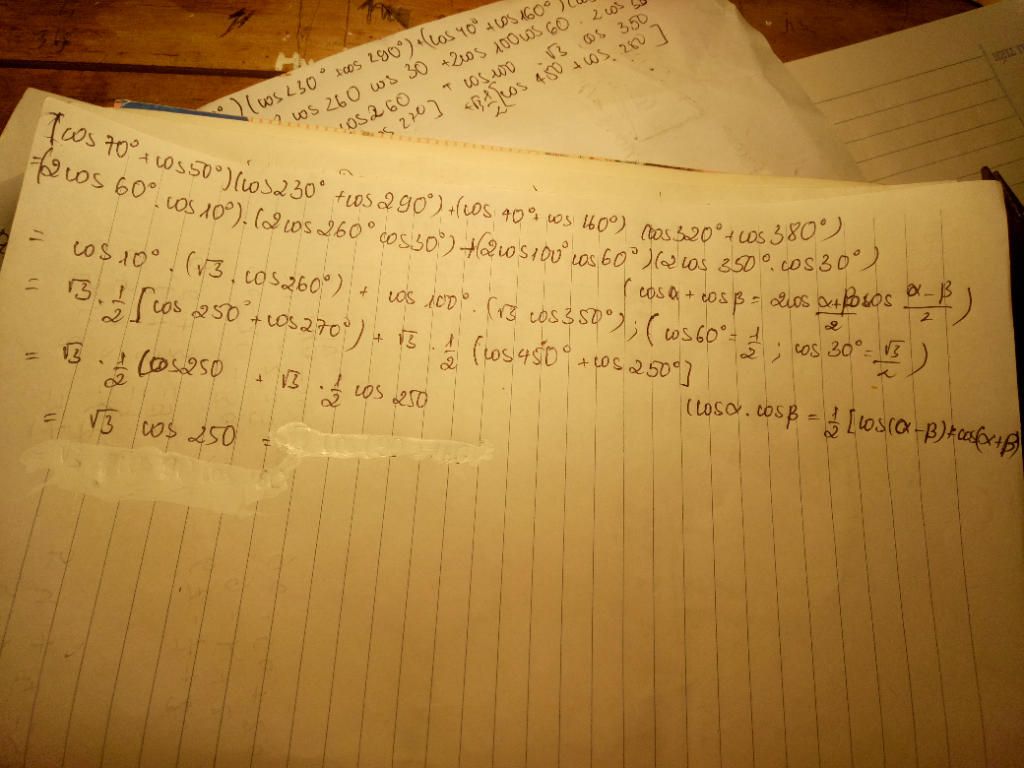 (cos230° + cos290°) + (cos40° + cos160°)
cos 260 cos 30 + 2cos 100 cos 60 . 2 cos
cos260 + cos100 . √3 cos 350
270] + √3 . 1/2 [cos 450 + cos 250]
(cos70° + cos50°)(cos230° + cos290°) + (cos 40° + cos 160°) (cos320° + cos380°)
= (2cos 60° . cos10°) . (2cos260° cos30°) + (2cos100° cos60°)(2cos 350° . cos30°)
= cos10° . (√3 . cos260°) + cos 100° . (√3 cos350°) ; (cosα + cosβ = 2cos (α+β)/2 cos (α-β)/2)
= √3 . 1/2 [cos 250° + cos270°) + √3 . 1/2 (cos450° + cos 250°] ; (cos60° = 1/2 ; cos 30° = √3/2)
= √3 . 1/2 (cos250 + √3 . 1/2 cos 250
(cosα . cosβ = 1/2 [cos(α-β) + cos(α+β)
= √3 cos 250 =